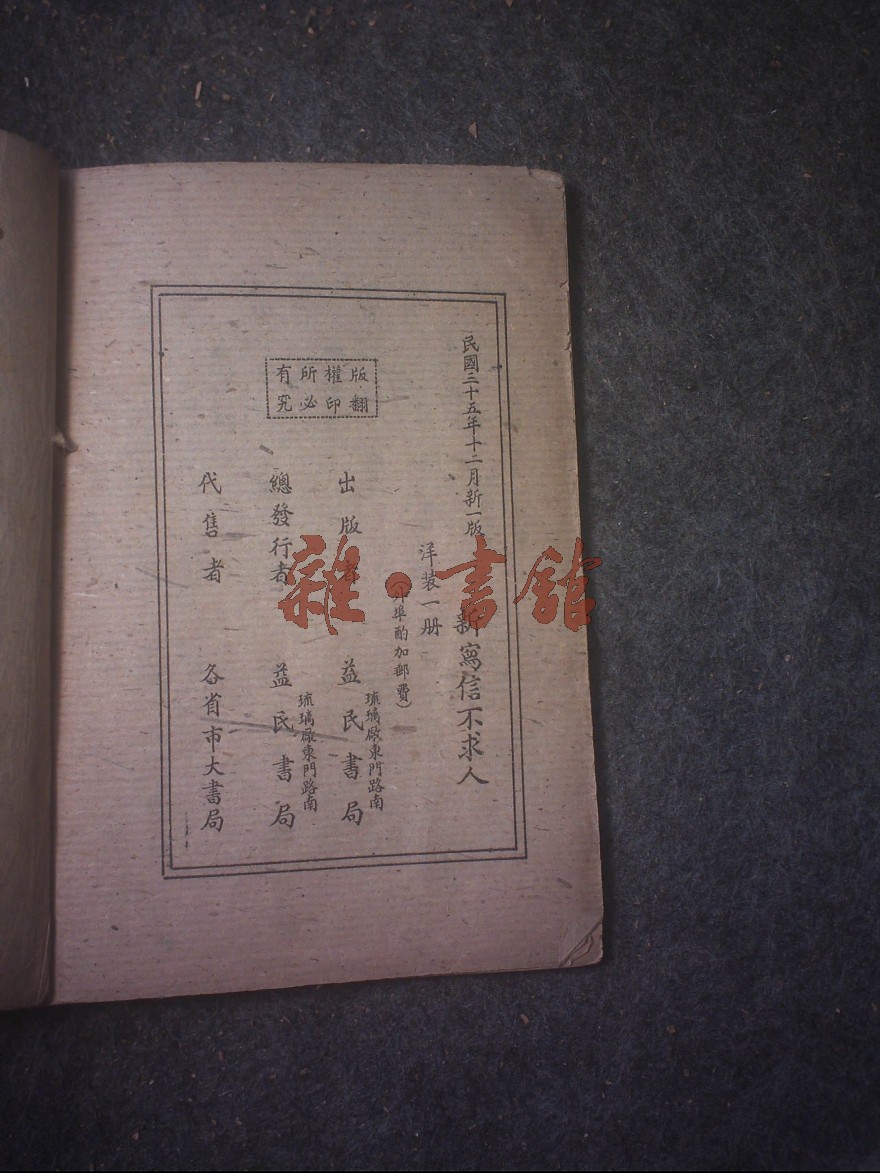 民國三十五年十二月新一版
新寫信不求人
洋装一册
(外埠酌加郵費)
版權所有
翻印必究
出版者 琉璃廠東門路南 益民書局
總發行者 琉璃廠東門路南 益民書局
代售者 各省市大書局
雜·書館